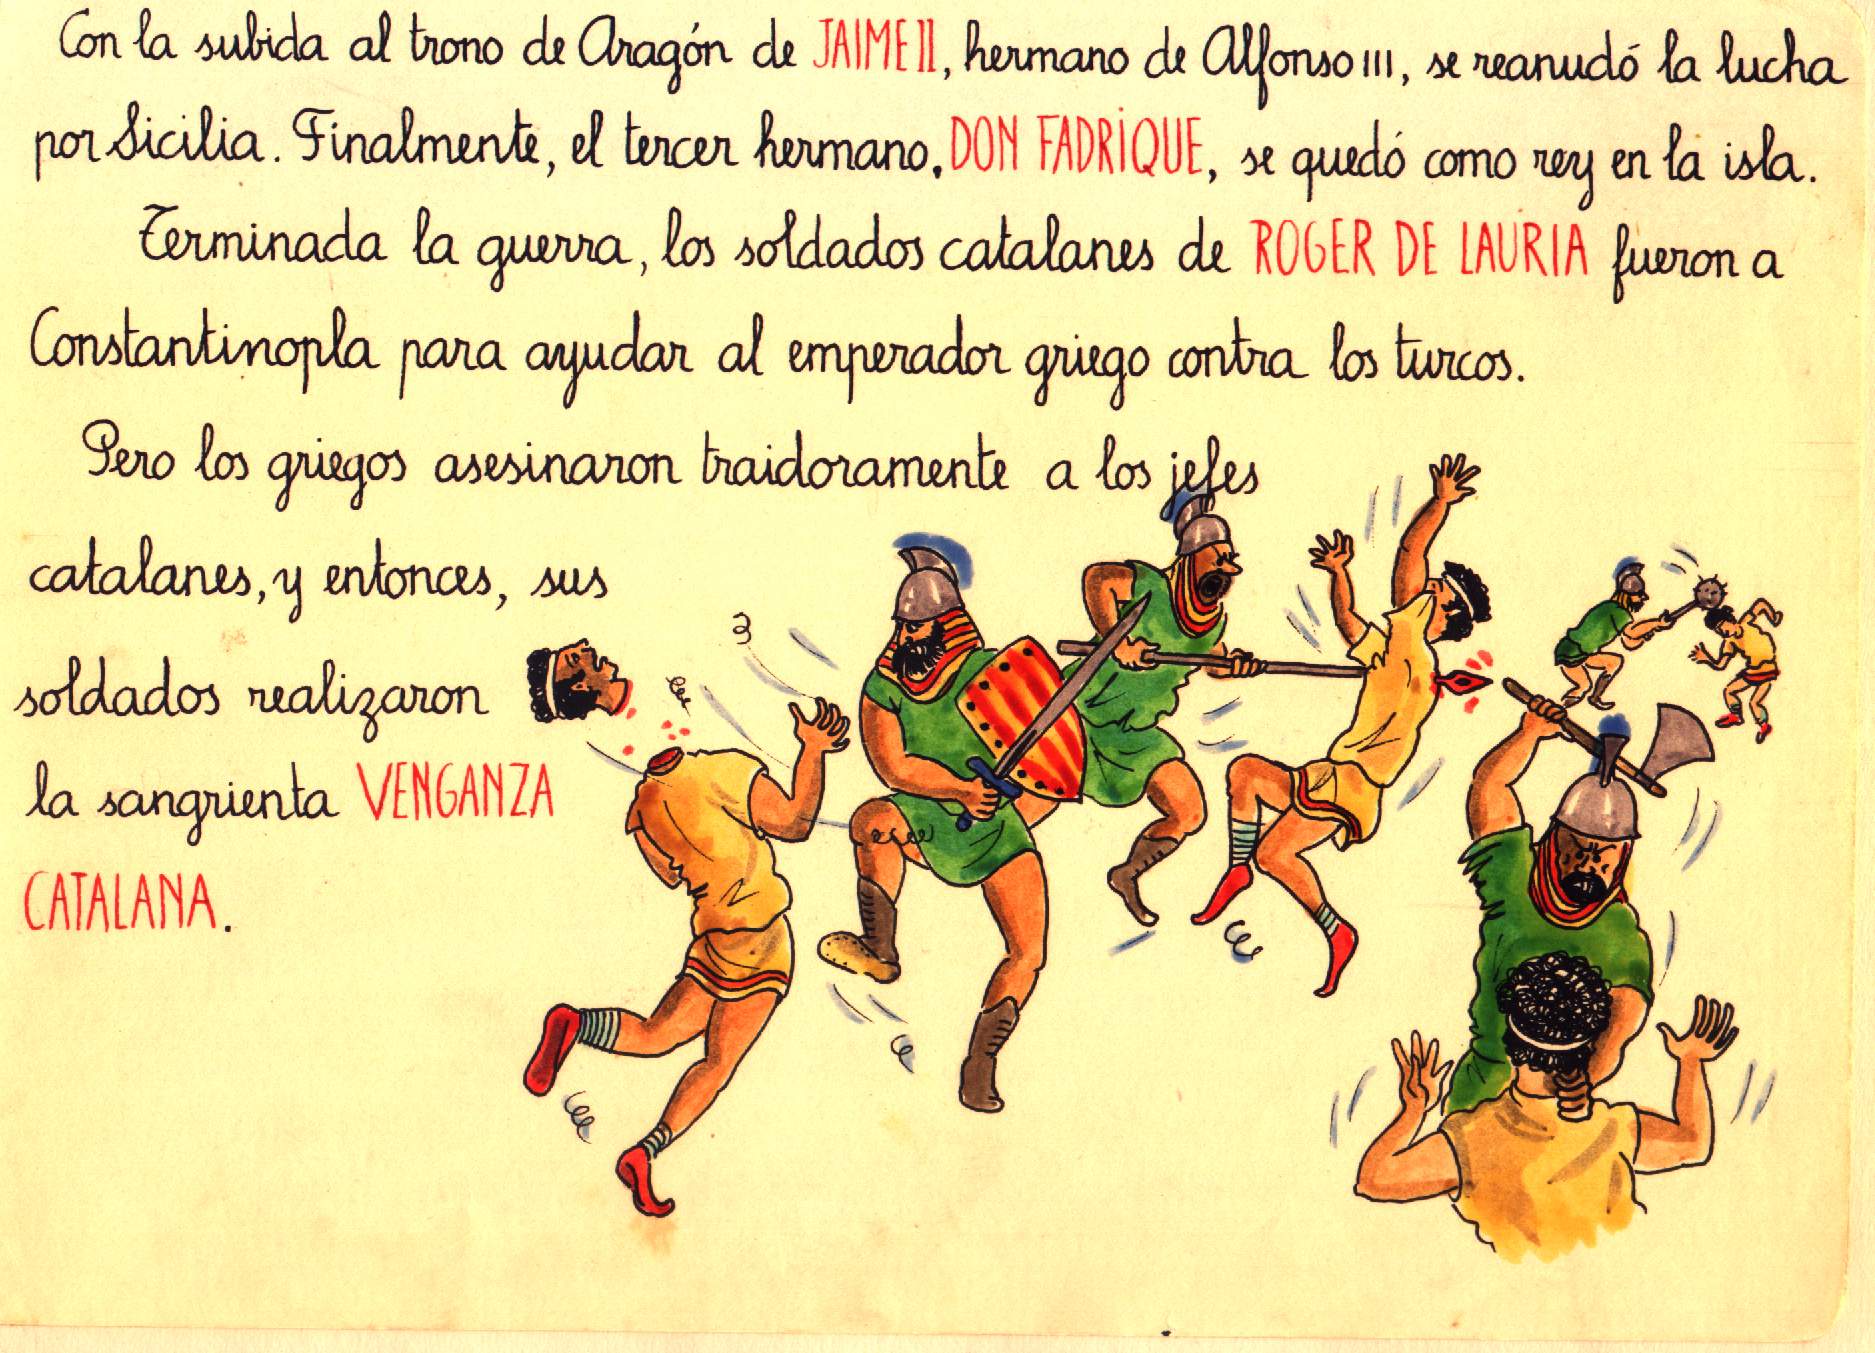 Con la subida al trono de Aragón de JAIME II, hermano de Alfonso III, se reanudó la lucha
por Sicilia. Finalmente, el tercer hermano, DON FADRIQUE, se quedó como rey en la isla.
Terminada la guerra, los soldados catalanes de ROGER DE LAURIA fueron a
Constantinopla para ayudar al emperador griego contra los turcos.
Pero los griegos asesinaron traidoramente a los jefes
catalanes, y entonces, sus
soldados realizaron
la sangrienta VENGANZA
CATALANA.